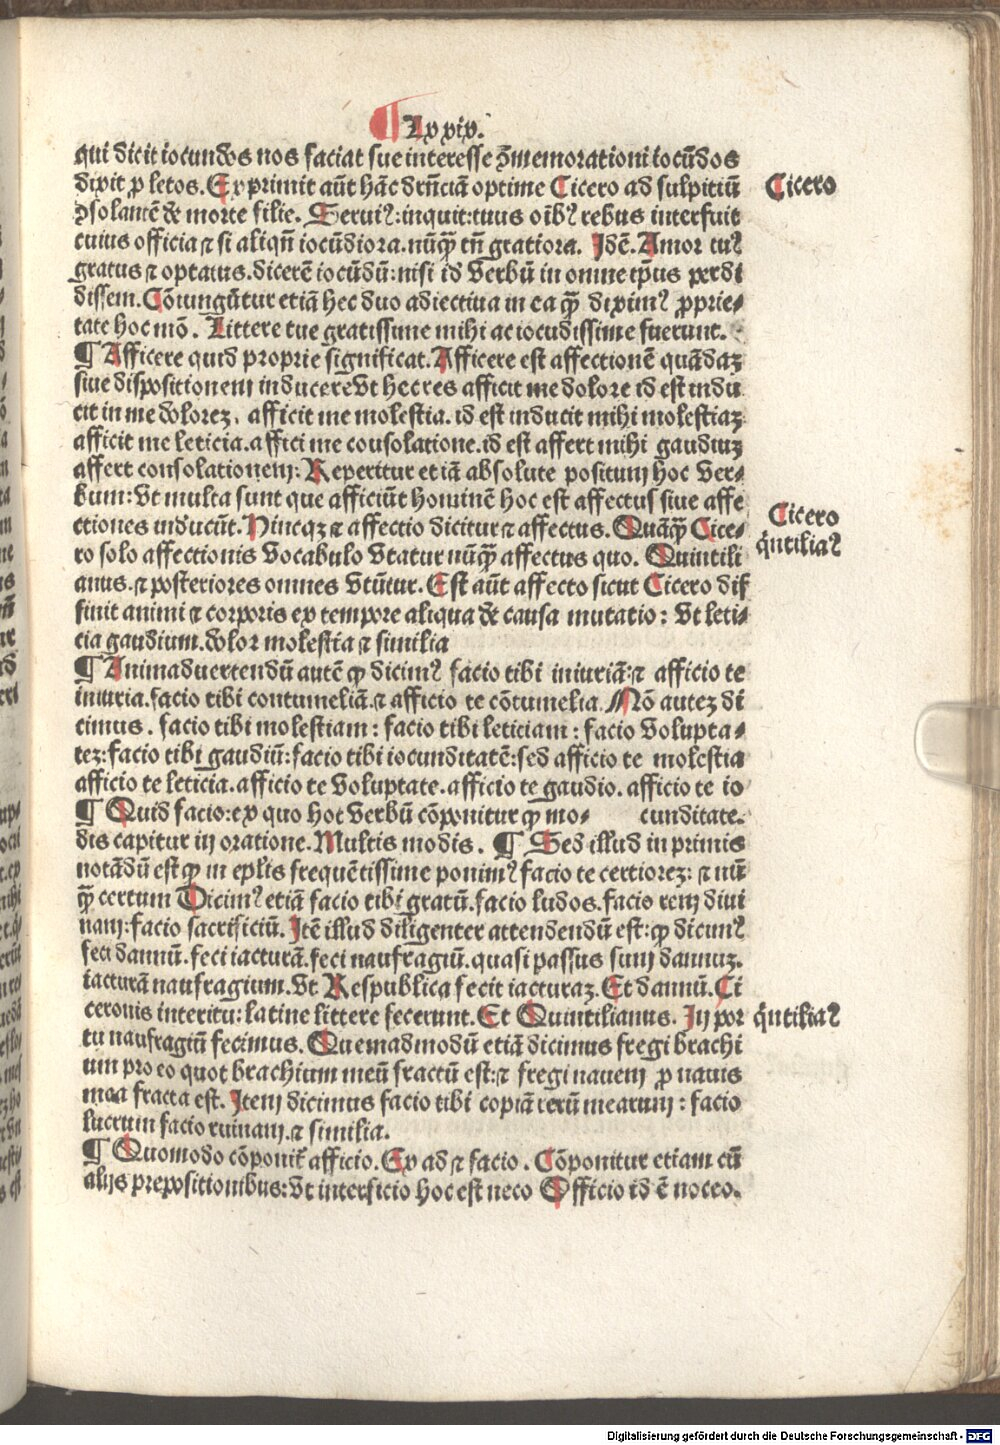 ¶ Lxxiv.
qui dicit iocundos nos faciat sue interesse ꝯmemorationi iocūdos
dixit ꝓ letos. Exprimit aūt hāc drn̄ciā optime Cicero ad sulpitiū
ꝯsolantē de morte filie. Seruiꝰ: inquit: tuus oībꝰ rebus interfuit
cuius officia ⁊ si aliqn̄ iocūdiora. nūꝗ̄ tn̄ gratiora. Idē. Amor tuꝰ
gratus ⁊ optatus. dicerē iocūdū: nisi id verbū in omne tp̄us perdi
dissem. Cōiungūtur etiā hec duo adiectiua in ea qꝫ̄ diximꝰ ꝓprie-
tate hoc mō. Littere tue gratissime mihi ac iocūdissime fuerunt.
¶ Afficere quid proprie significat. Afficere est affectionē quādaꝫ
siue dispositionem inducere vt hec res afficit me dolore id est indu
cit in me doloreꝫ. afficit me molestia. id est inducit mihi molestiaꝫ
afficit me leticia. affici me consolatione. id est affert mihi gaudiuꝫ
affert consolationem: Reperitur etiā absolute positum hoc ver-
bum: vt multa sunt que afficiūt hominē hoc est affectus siue affe
ctiones inducūt. Hincqꝫ ⁊ affectio dicitur ⁊ affectus. Quāꝗ̄ Cice-
ro solo affectionis vocabulo vtatur nūꝗ̄ affectus quo. Quintili
anus. ⁊ posteriores omnes vtūtur. Est aūt affecto sicut Cicero dif
finit animi ⁊ corporis ex tempore aliqua de causa mutatio: vt leti-
cia gaudium. dolor molestia ⁊ similia
¶ Animaduertendū autē ꝙ dicimꝰ facio tibi iniuriā. ⁊ afficio te
iniuria. facio tibi contumeliā. ⁊ afficio te cōtumelia. Nō auteꝫ di
cimus. facio tibi molestiam: facio tibi leticiam: facio volupta-
teꝫ: facio tibi gaudiū: facio tibi iocunditatē: sed afficio te molestia
afficio te leticia. afficio te voluptate. afficio te gaudio. afficio te io
¶ Quid facio: ex quo hoc verbū cōponitur ꝙ mo- cunditate.
dis capitur in oratione. Multis modis. ¶ Sed illud in primis
notādū est ꝙ in ep̄lis frequētissime ponimꝰ facio te certioreꝫ: ⁊ nū
ꝗ̄ certum Dicimꝰ etiā facio tibi gratū. facio ludos. facio rem diui
nam: facio sacrificiū. Itē illud diligenter attendendū est: ꝙ dicunꝰ
feci dannū. feci iacturā. feci naufragiū. quasi passus sum dannuꝫ.
iacturā naufragium. vt Respublica fecit iacturaꝫ. Et dannū. Ci
ceronis interitu: latine littere fecerunt. Et Quintilianus. In por
tu naufragiū fecimus. Quemadmodū etiā dicimus fregi brachi
um pro eo quot brachium meū fractū est: ⁊ fregi nauem ꝓ nauis
mea fracta est. Item dicimus facio tibi copiā rerū mearum: facio
lucrum facio ruinam. ⁊ similia.
¶ Quomodo cōponit̄ afficio. Ex ad ⁊ facio. Cōponitur etiam cū
alijs prepositionibus: vt interficio hoc est neco Officio id ē noceo.
Cicero
Cicero
q̄ntiliaꝰ
q̄ntiliaꝰ
Digitalisierung gefördert durch die Deutsche Forschungsgemeinschaft - DFG